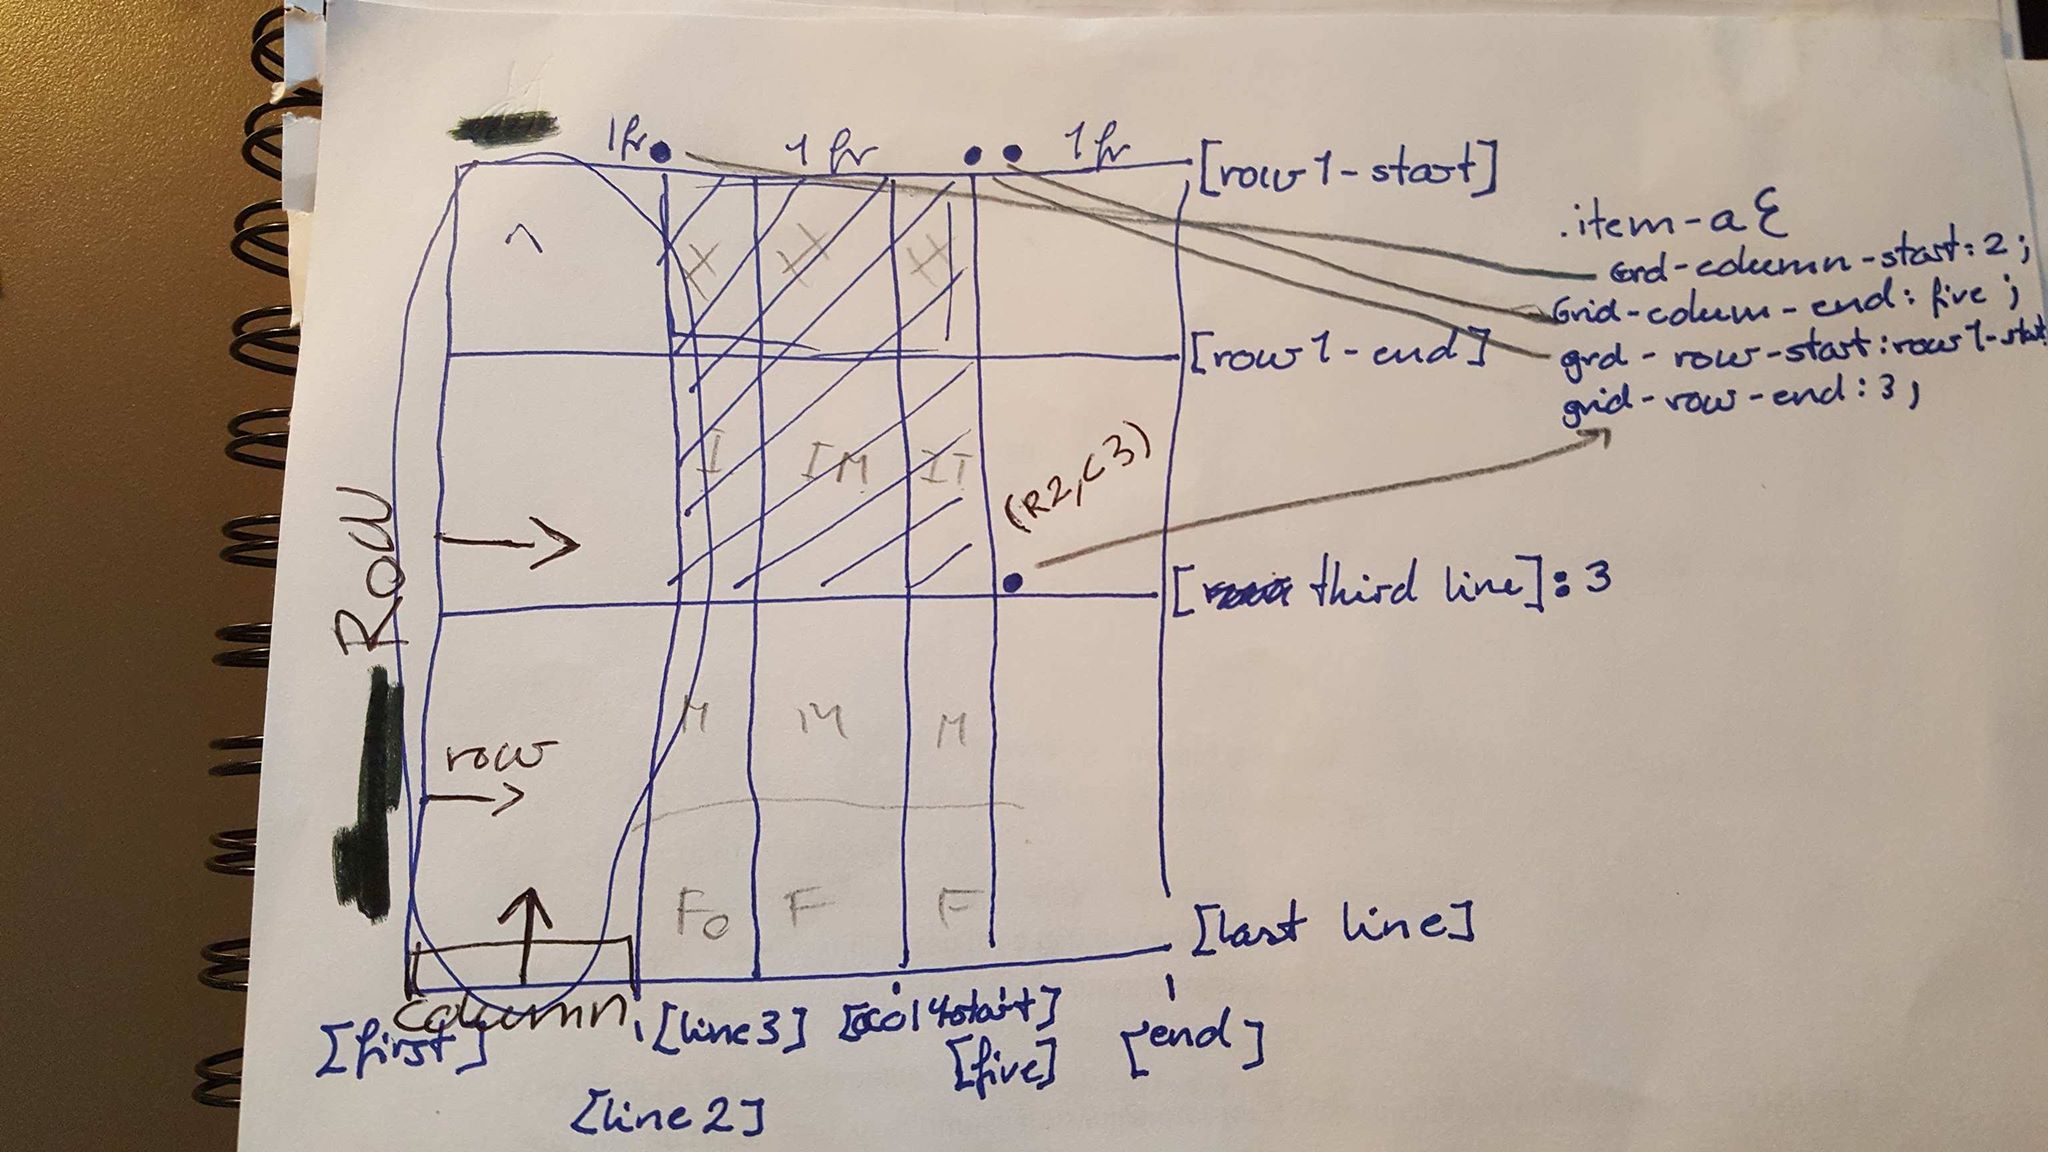 1fr 1fr 1fr
[row1-start]
.item-a {
Grd-column-start: 2;
Grid-colum-end: five;
grd-row-start: row1-start
grid-row-end: 3;
1
H H H
[row1-end]
I IM IT
(R2, C3)
Row
[third line]: 3
M M M
row
Fo F F
[last line]
column
[first]
[line3]
[col4start]
[five]
[end]
[line2]